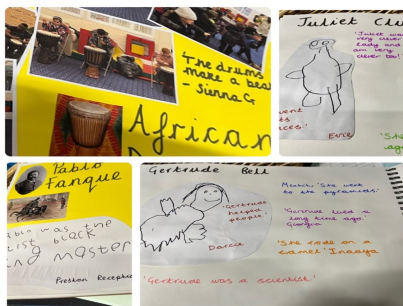 'The drums
make a beat'
- Sienna G
African
Juliet Cl
'Juliet was
very clever
lady and
am very
clever too!'
event
ts
ces.'
Evie
'She
ago
Pablo
Fanque
Pablo was the
first black
ing master
Preston Reception
Gertrude Bell
'Gertrude
helped
people.'
Darcie
'She went
to the
pyramids.'
'Gertrude lived a
long time ago.'
Georgia
'She rode on a
camel' Inaaya
'Gertrude was a scientist'